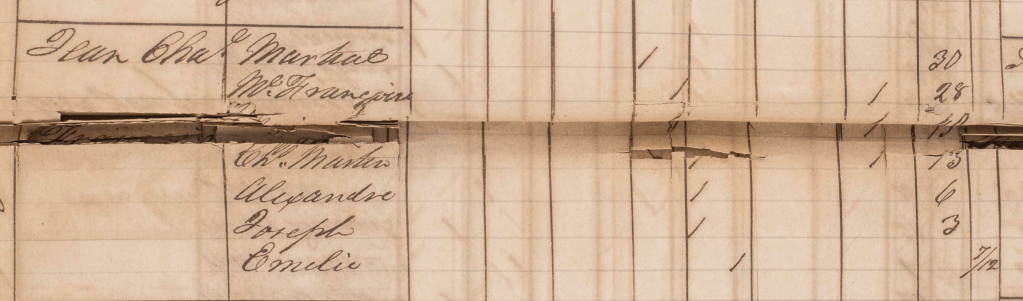 Jean Chas. Martial 1 30
Me. Françoise 1 1 28
1 1
Chs. Martin 1 1 13
Alexandre 1 6
Joseph 1 3
Emelie 1 7/12